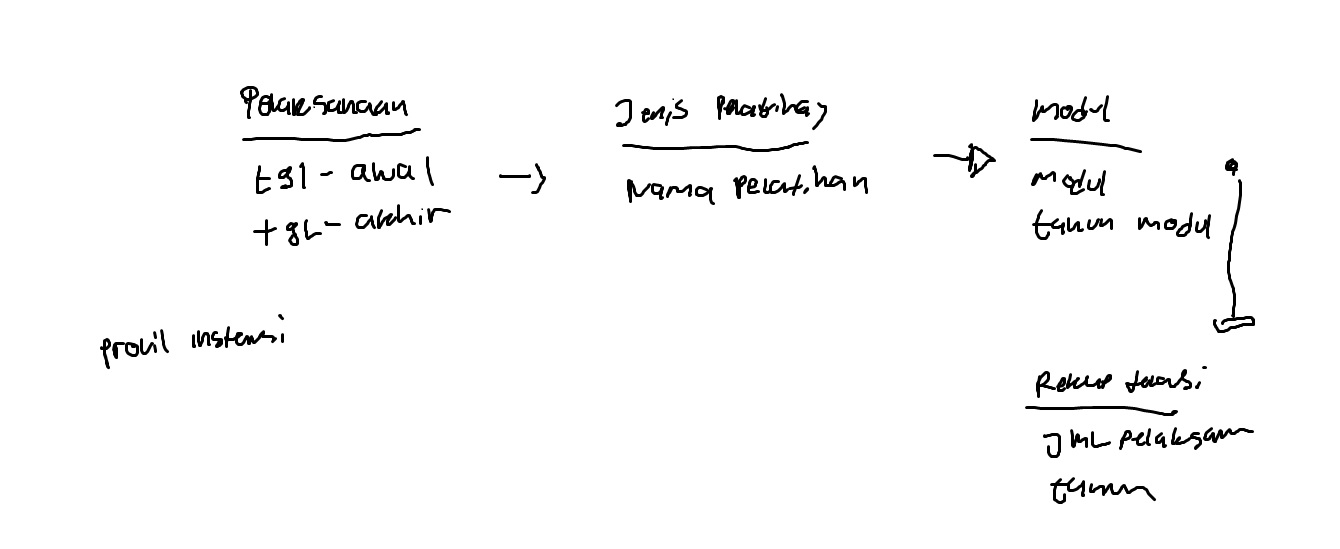 Pelaksanaan
tgl-awal
tgl-akhir
Jenis Pelatihan
Nama Pelatihan
Modul
Modul
tahun modul
profil instansi
Rekap
JML pelaksanaan
tahun